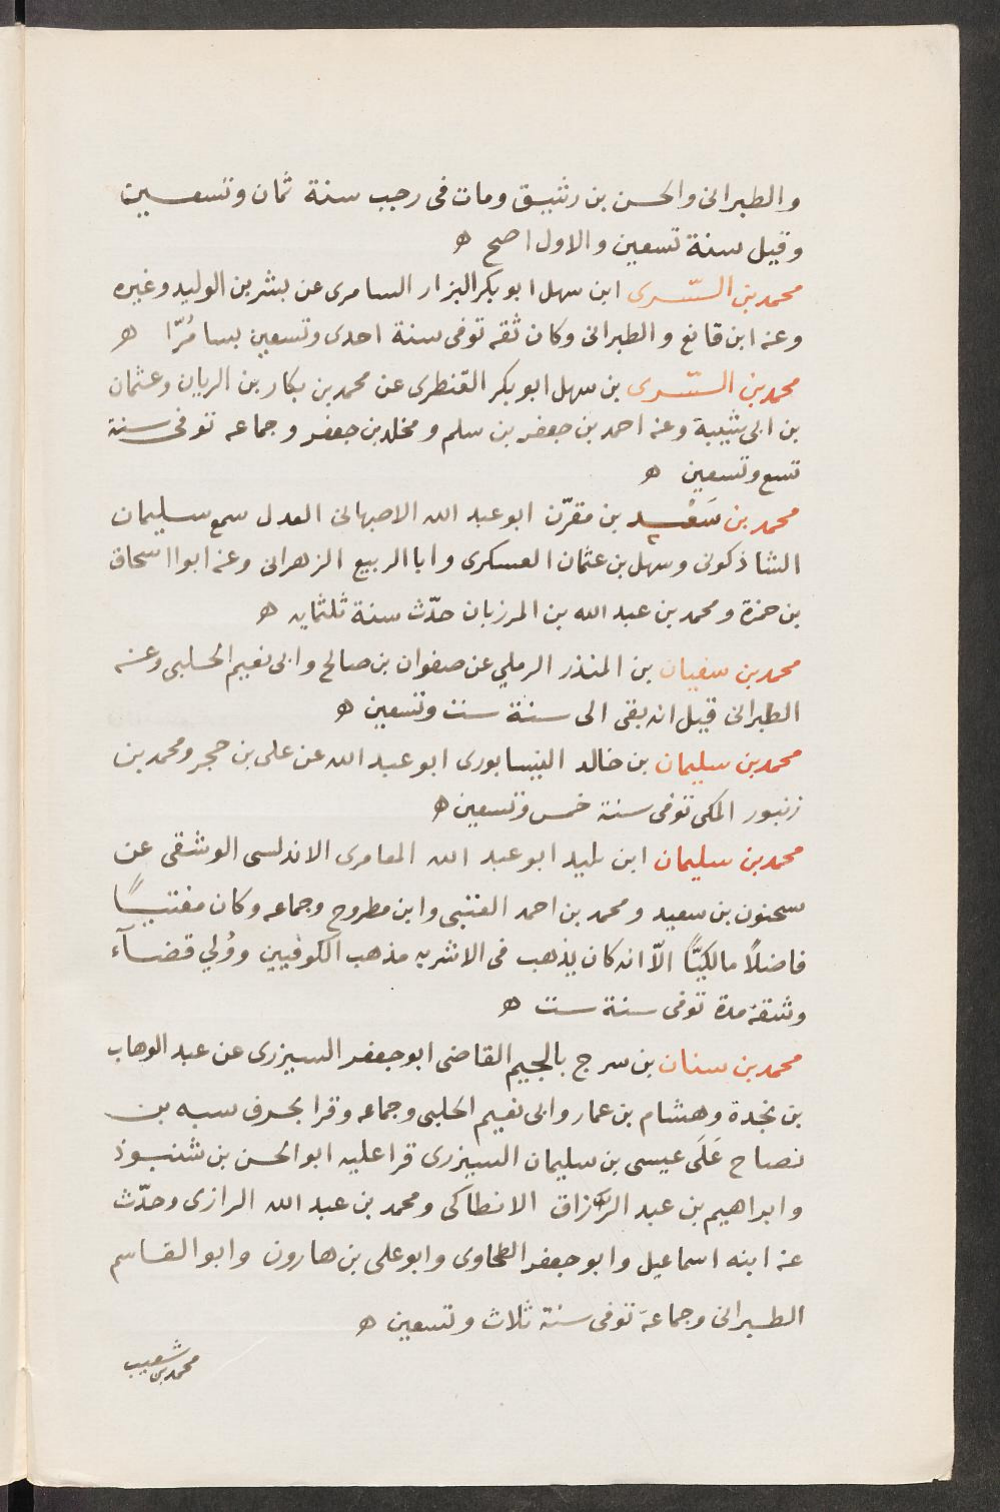 والطبرانى والحسن بن رشيق ومات فى رجب سنة ثمان وتسعين
وقيل سنة تسعين والاول اصح ه
محمد بن السّرى ابن سهل ابو بكر البزار السامرى عن بشر بن الوليد وغيره
وعنه ابن قانع والطبرانى وكان ثقه توفى سنة احدى وتسعين بسا مُرّا ه
محمد بن السّرى بن سهل ابو بكر القنطرى عن محمد بن بكار بن الريان وعثمان
بن ابى شيبة وعنه احمد بن جعفر بن سلم ومخلد بن جعفر وجماعه توفى سنة
تسع وتسعين ه
محمد بن سَعْيد بن مقرّن ابو عبد الله الاصبهانى العدل سمع سليمان
الشاذكونى وسهل بن عثمان العسكرى وابا الربيع الزهرانى وعنه ابوا اسحاق
بن حمزة ومحمد بن عبد الله بن المرزبان حدّث سنة ثلثمايه ه
محمد بن سفيان بن المنذر الرملي عن صفوان بن صالح وابى نعيم الحلبى وعنه
الطبرانى قيل انه بقى الى سنة ست وتسعين ه
محمد بن سليمان بن خالد النيسابورى ابو عبد الله عن على بن حجر ومحمد بن
زنبور المكى توفى سنة خمس وتسعين ه
محمد بن سليمان ابن تليد ابو عبد الله المعامرى الاندلسى الوشقى عن
سحنون بن سعيد ومحمد بن احمد العتبى وابن مطروح وجماعه وكان مفتيًا
فاضلاً مالكيًّا الاّ انه كان يذهب فى الاشربه مذهب الكوفيين ووُلي قضآء
وشقة مدة توفى سنة ست ه
محمد بن سنان بن سرج بالجيم القاضى ابو جعفر السيزرى عن عبد الوهاب
بن نجدة وهشام بن عمار وابى نعيم الحلبى وجماعه وقرا بحرف سبه بن
نصاح عَلَى عيسى بن سليمان السيزرى قرا عليه ابو الحسن بن شنبوذ
وابراهيم بن عبد الرزاق الانطاكى ومحمد بن عبد الله الرازى وحدّث
عنه ابنه اسماعيل وابو جعفر الطحاوى وابو على بن هارون وابو القاسم
الطبرانى وجماعة توفى سنة ثلاث وتسعين ه
محمد بن شعيب